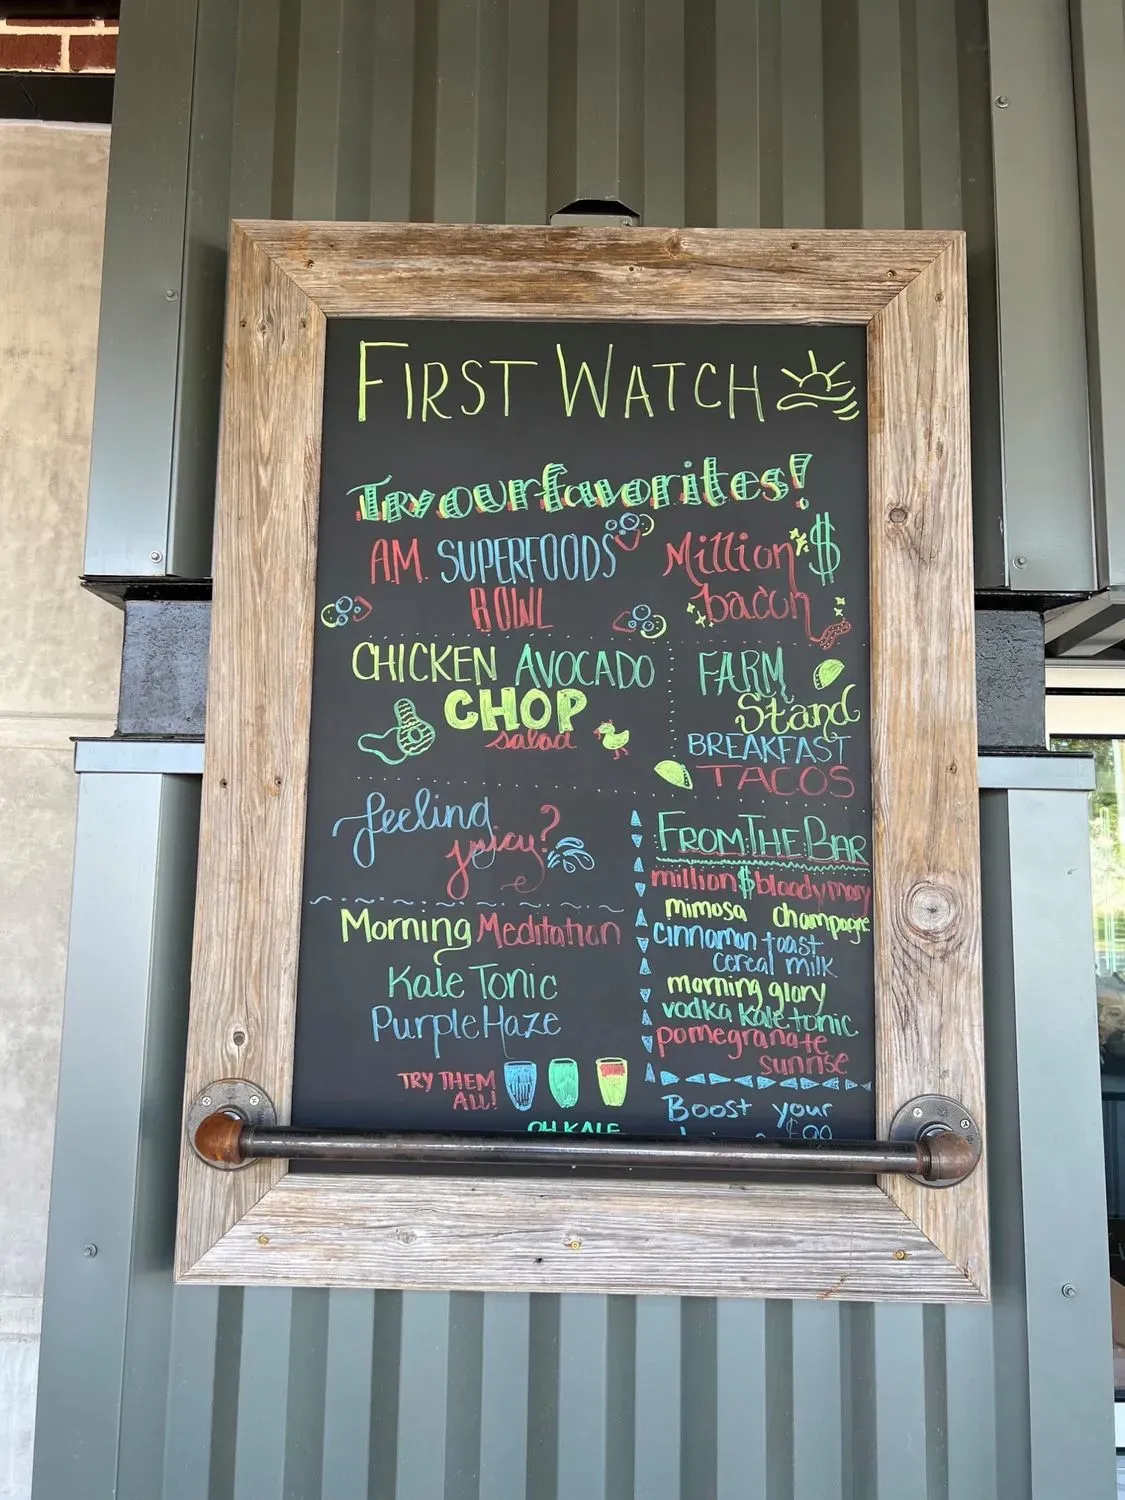 FIRST WATCH
Try our favorites!
A.M. SUPERFOODS
BOWL
Million $
bacon
CHICKEN AVOCADO
CHOP
salad
FARM
Stand
BREAKFAST
TACOS
feeling
juicy?
Morning Meditation
Kale Tonic
Purple Haze
TRY THEM
ALL!
OH KALE
FROM THE BAR
million $ bloody mary
mimosa champagne
cinnamon toast
cereal milk
morning glory
vodka kale tonic
pomegranate
sunrise
Boost your